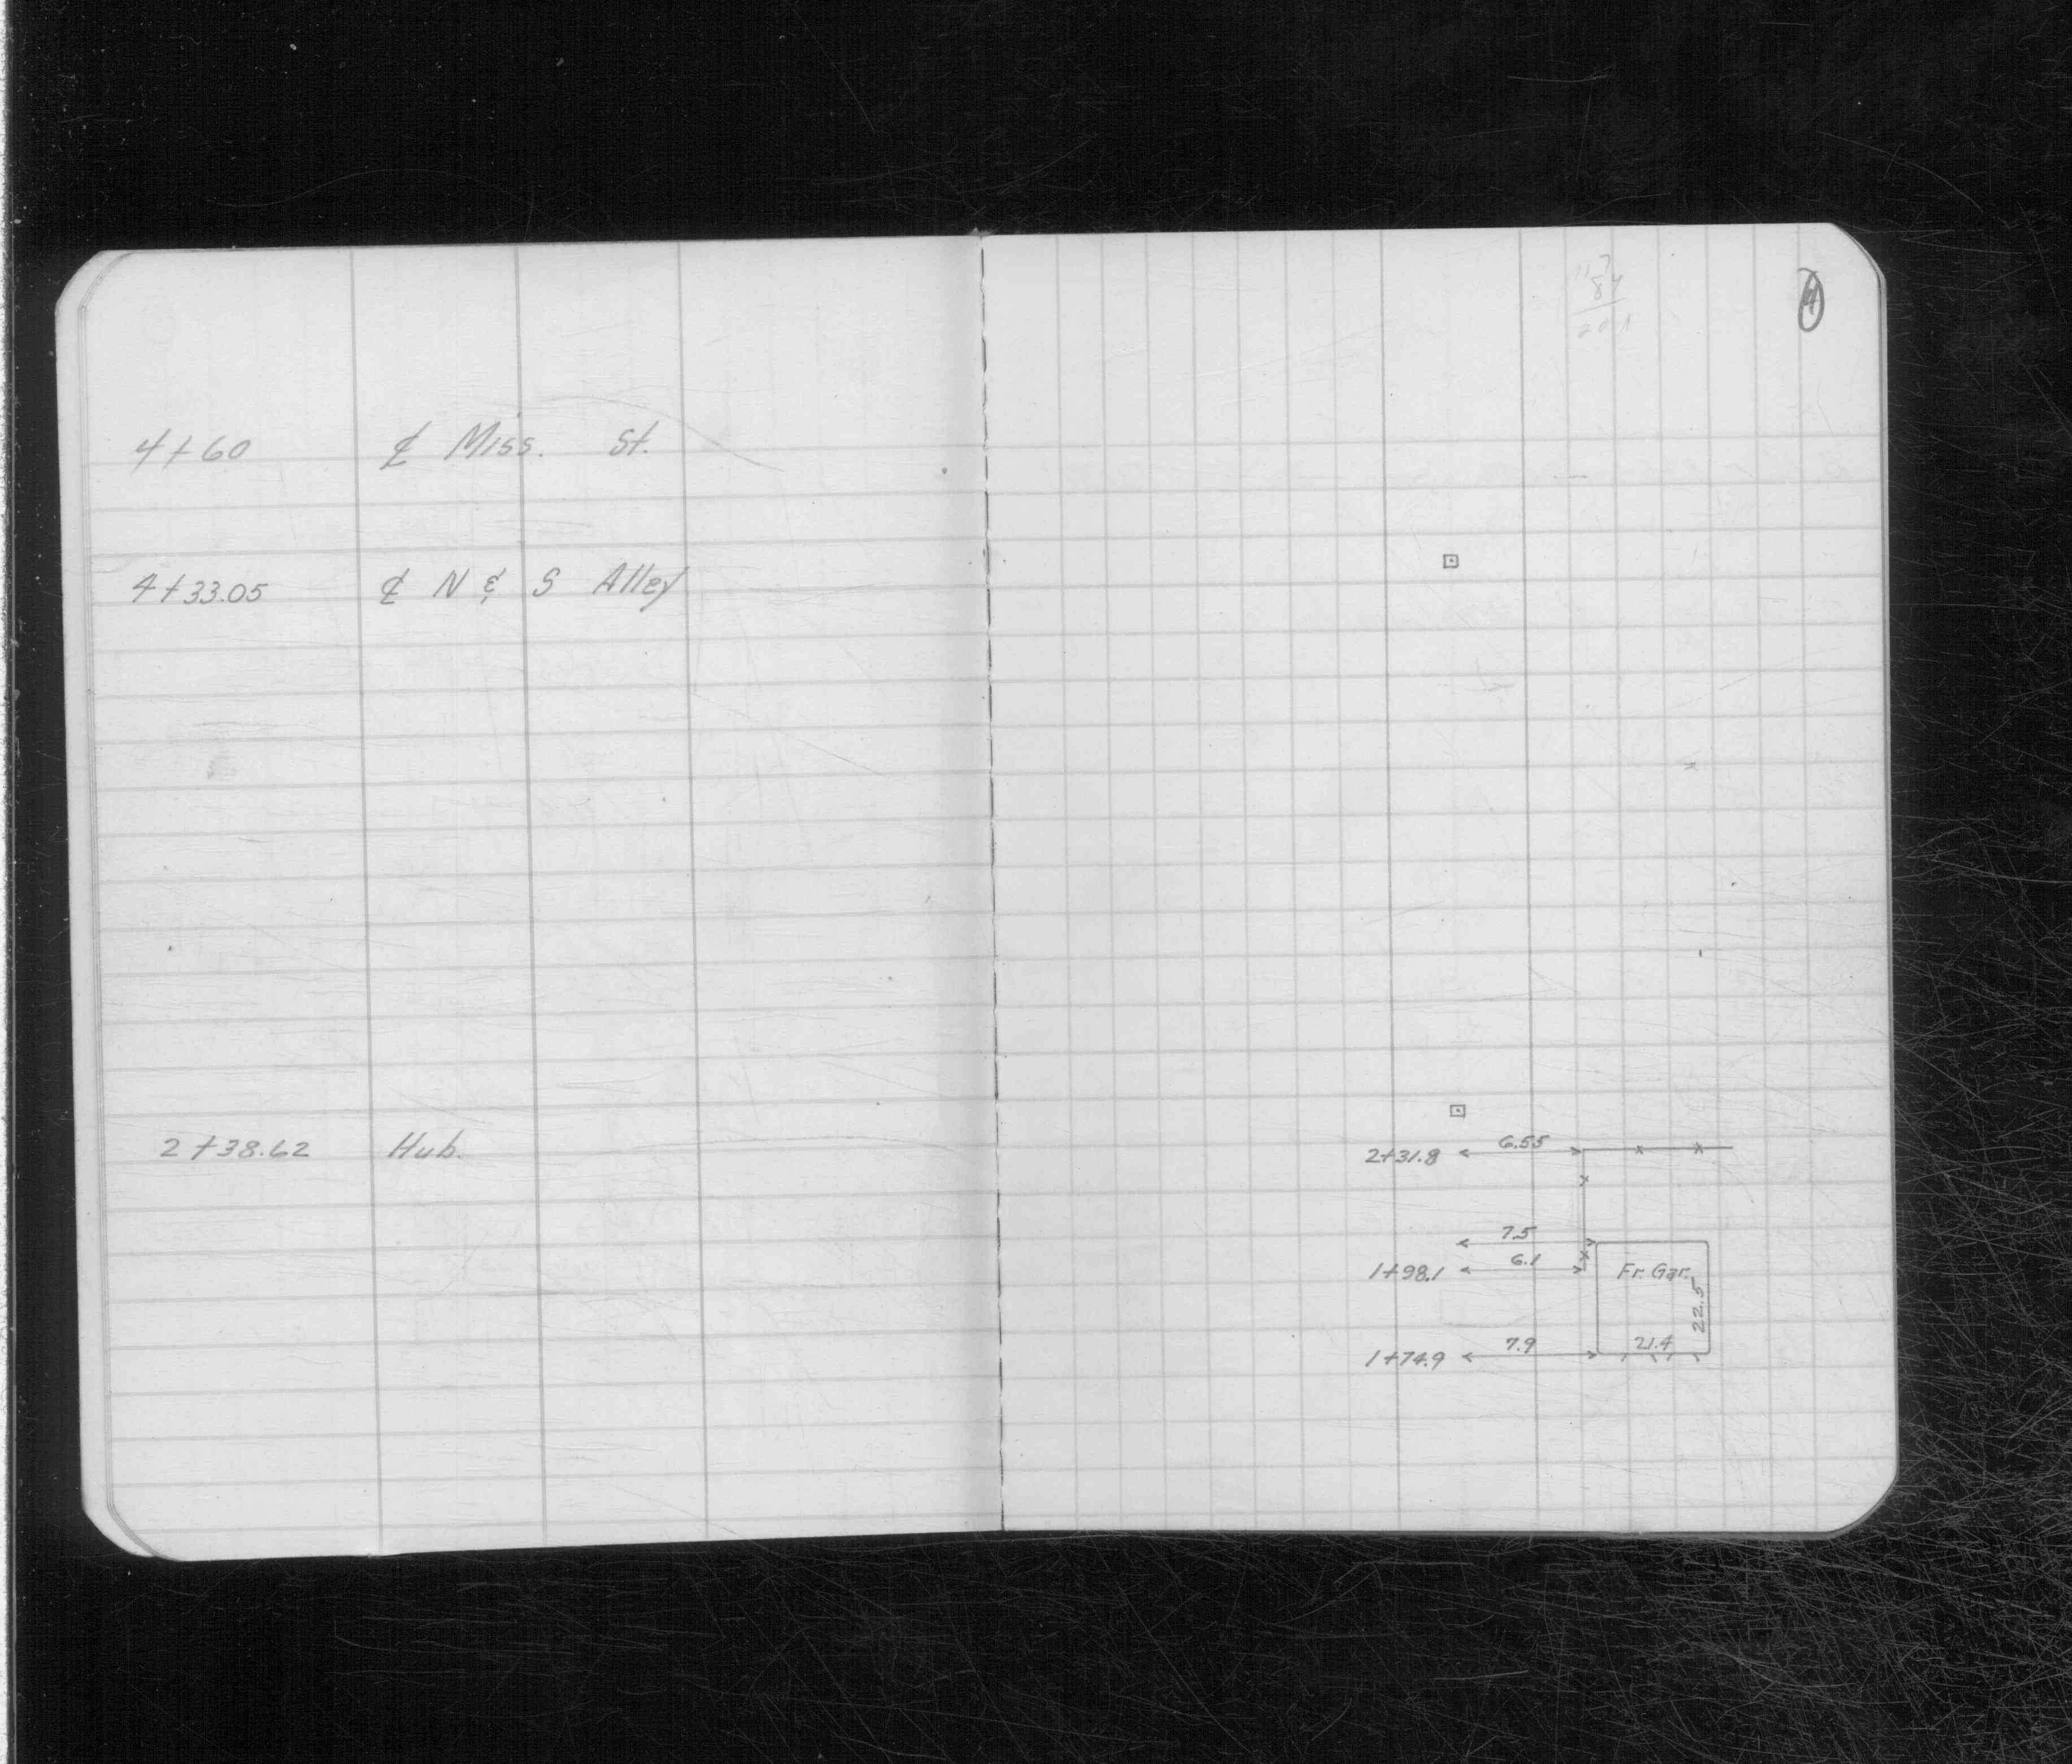 4+60 ℄ Miss. St.
4+33.05 ℄ N & S Alley
2+38.62 Hub.
4
117
84
201
2+31.8 6.55
7.5
1+98.1 6.1
Fr. Gar.
22.5
1+74.9 7.9 21.4